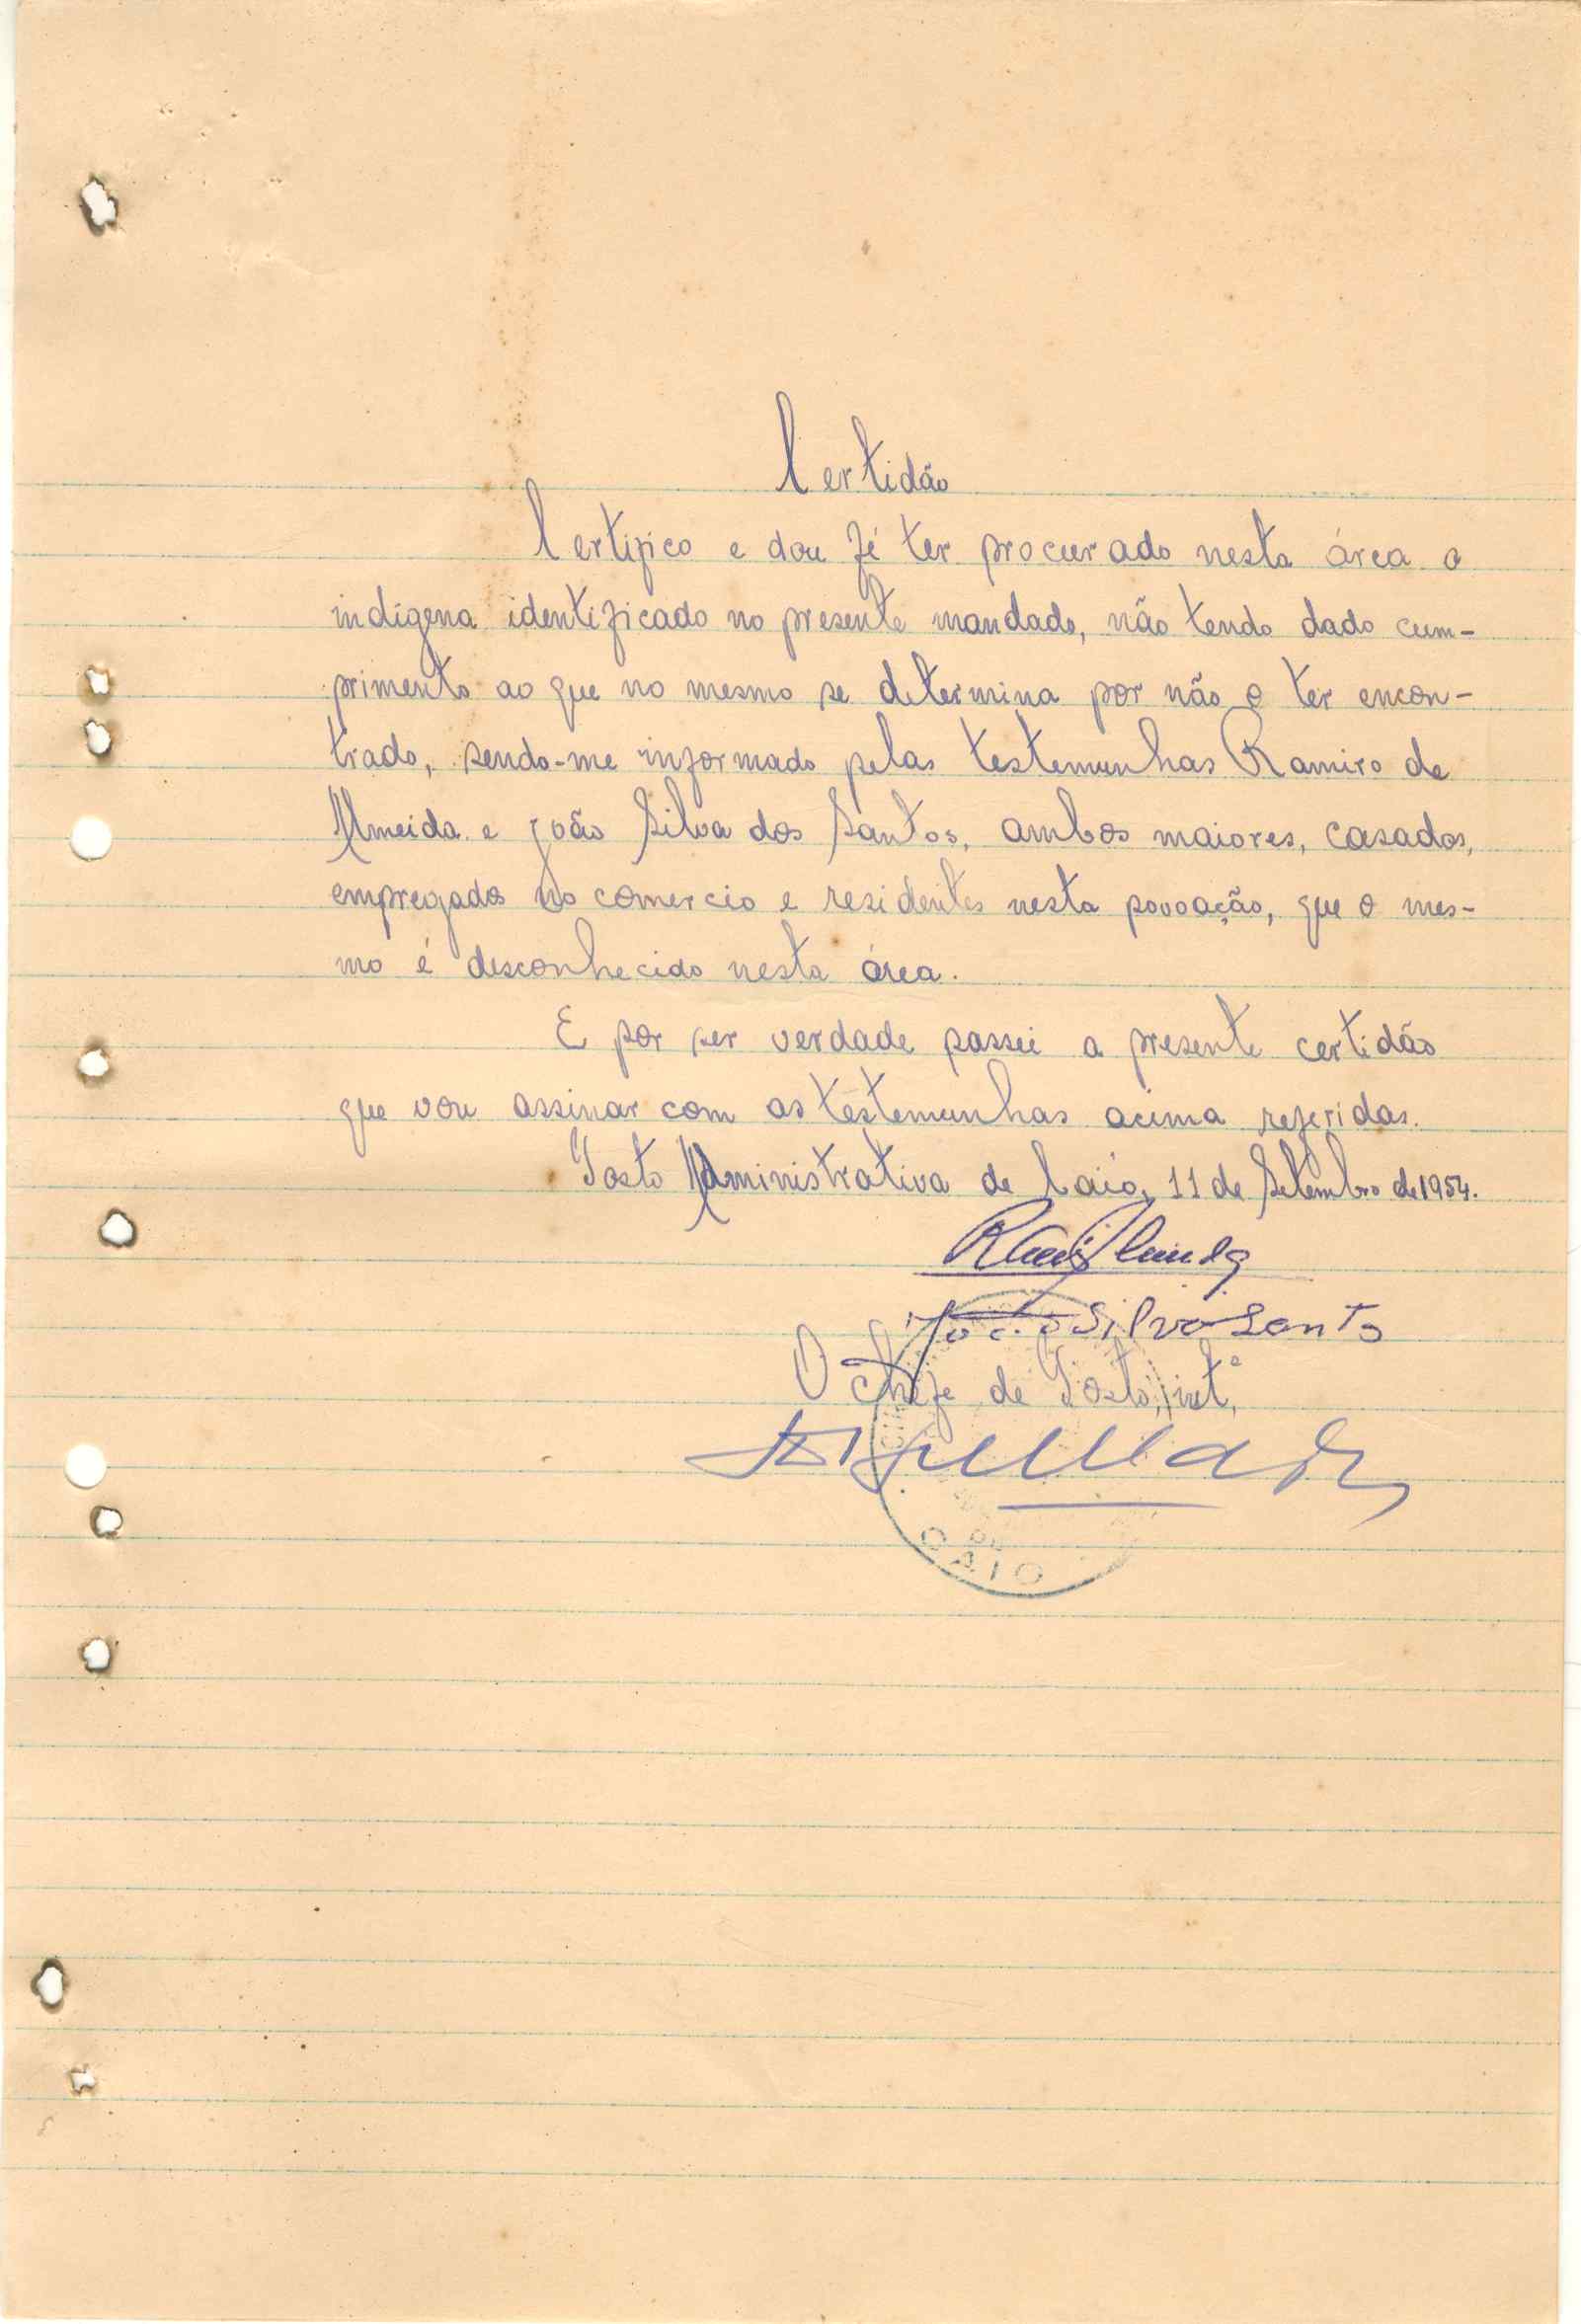 Certidão
Certifico e dou fé ter procurado nesta área o
indígena identificado no presente mandado, não tendo dado cum-
primento ao que no mesmo se determina por não o ter encon-
trado, sendo-me informado pelas testemunhas Ramiro de
Almeida e João Silva dos Santos, ambos maiores, casados,
empregados no comercio e residentes nesta povoação, que o mes-
mo é desconhecido nesta área.
E por ser verdade passei a presente certidão
que vou assinar com as testemunhas acima referidas.
Posto Administrativa de Caió, 11 de Setembro de 1954.
João Silva Santos
O Chefe de Posto, intº,
DE
CAIO